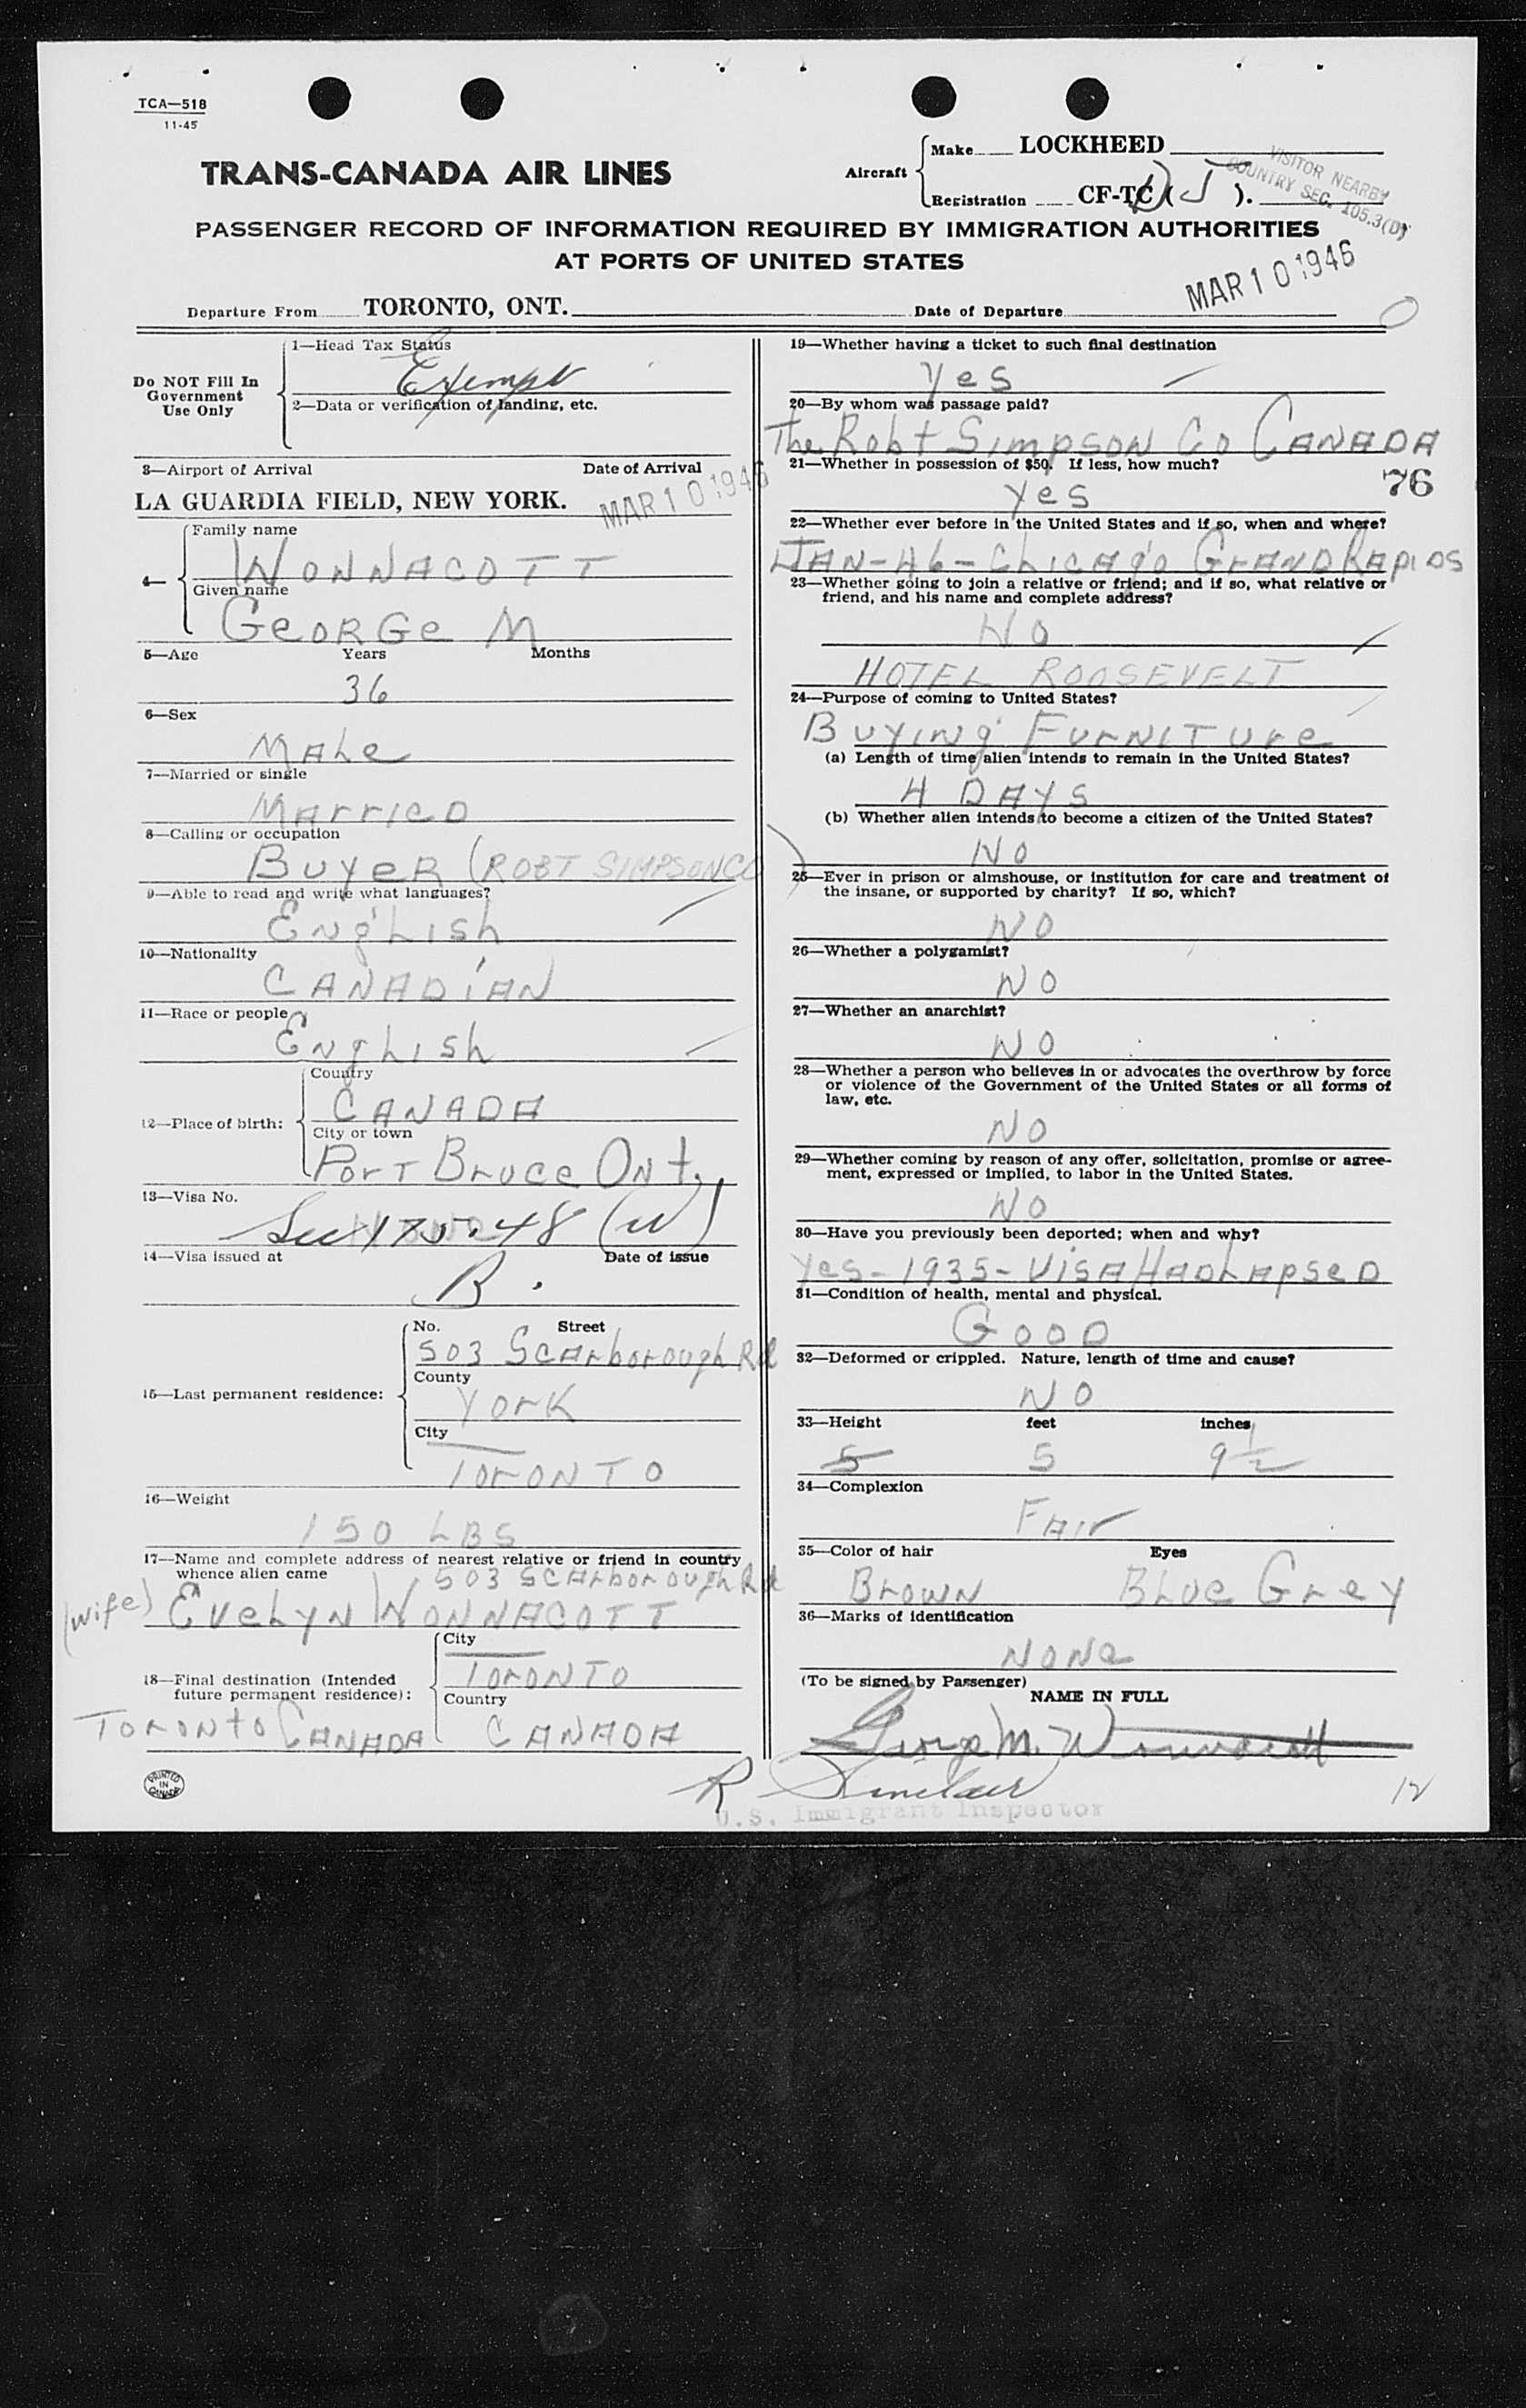 TCA—518
11-45
TRANS-CANADA AIR LINES
Aircraft
Make LOCKHEED
Registration CF-TC ( J ).
VISITOR NEARBY
COUNTRY SEC. 105.3(D)
PASSENGER RECORD OF INFORMATION REQUIRED BY IMMIGRATION AUTHORITIES
AT PORTS OF UNITED STATES
Departure From TORONTO, ONT. Date of Departure MAR 10 1946
Do NOT Fill In
Government
Use Only
1—Head Tax Status
Exempt
2—Data or verification of landing, etc.
3—Airport of Arrival Date of Arrival
LA GUARDIA FIELD, NEW YORK. MAR 10 1946
4—
Family name
WONNACOTT
Given name
GeORGe M
5—Age Years Months
36
6—Sex
MALe
7—Married or single
MArrieD
8—Calling or occupation
BuyeR (ROBT SIMPSON CO)
9—Able to read and write what languages?
English
10—Nationality
CANADIAN
11—Race or people
English
12—Place of birth:
Country
CANADA
City or town
PorT Bruce Ont.
13—Visa No.
Sec 175.48 (W)
14—Visa issued at Date of issue
B.
15—Last permanent residence:
No. Street
503 Scarborough Rd
County
York
City
TORONTO
16—Weight
150 LBS
17—Name and complete address of nearest relative or friend in country
whence alien came
503 Scarborough Rd
(wife) EveLyN WONNACOTT
18—Final destination (Intended
future permanent residence):
City
TORONTO
Country
Toronto CANADA CANADA
PRINTED
IN
CANADA
19—Whether having a ticket to such final destination
Yes
20—By whom was passage paid?
The Robt Simpson Co CANADA
21—Whether in possession of $50. If less, how much?
76
yes
22—Whether ever before in the United States and if so, when and where?
JAN-46-Chicago GrAND RApiDS
23—Whether going to join a relative or friend; and if so, what relative or
friend, and his name and complete address?
NO
HOTEL ROOSEVELT
24—Purpose of coming to United States?
Buying FurNITure
(a) Length of time alien intends to remain in the United States?
4 DAYS
(b) Whether alien intends to become a citizen of the United States?
NO
25—Ever in prison or almshouse, or institution for care and treatment of
the insane, or supported by charity? If so, which?
NO
26—Whether a polygamist?
NO
27—Whether an anarchist?
NO
28—Whether a person who believes in or advocates the overthrow by force
or violence of the Government of the United States or all forms of
law, etc.
NO
29—Whether coming by reason of any offer, solicitation, promise or agree-
ment, expressed or implied, to labor in the United States.
NO
30—Have you previously been deported; when and why?
Yes-1935-VISA HAD LApseD
31—Condition of health, mental and physical.
GOOD
32—Deformed or crippled. Nature, length of time and cause?
NO
33—Height feet inches
5 5 9 1/2
34—Complexion
FAir
35—Color of hair Eyes
Brown BLue Grey
36—Marks of identification
NONe
(To be signed by Passenger)
NAME IN FULL
George M. Wonnacott
R Sinclair
U.S. Immigrant Inspector
12